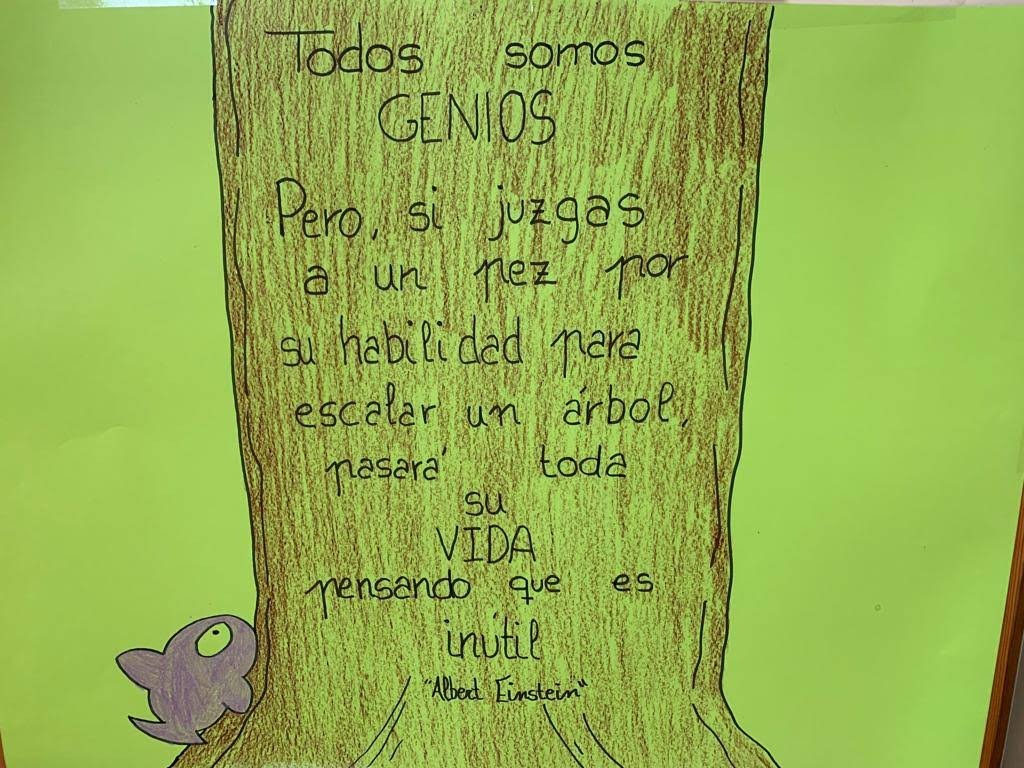 Todos somos
GENIOS
Pero, si juzgas
a un pez por
su habilidad para
escalar un árbol,
pasará toda
su
VIDA
pensando que es
inútil
"Albert Einstein"